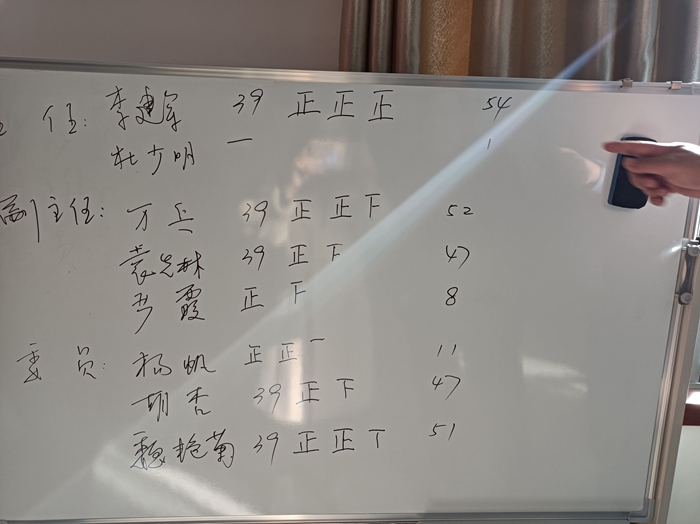 主 任: 李建军 39 正正正 54
杜少明 一 1
副主任: 万兵 39 正正下 52
袁光林 39 正下 47
尹霞 正下 8
委员: 杨帆 正正一 11
胡杏 39 正下 47
魏艳菊 39 正正丅 51